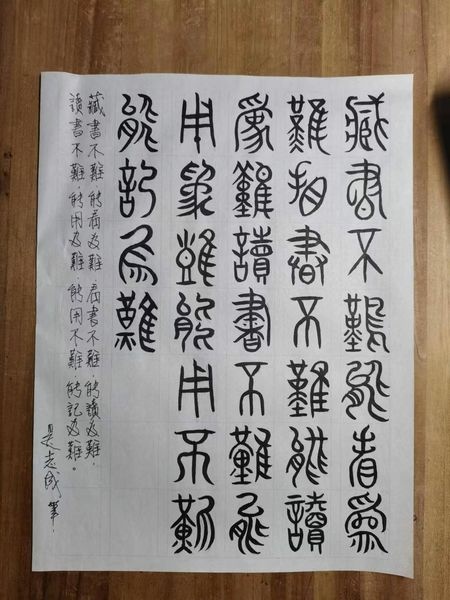 藏書不難能看為
難看書不難能讀
為難讀書不難能
用為難能用不難
能記為難
藏書不難，能看为難，看書不難，能讀为難，
讀書不難，能用为難，能用不難，能記为難。
志成筆